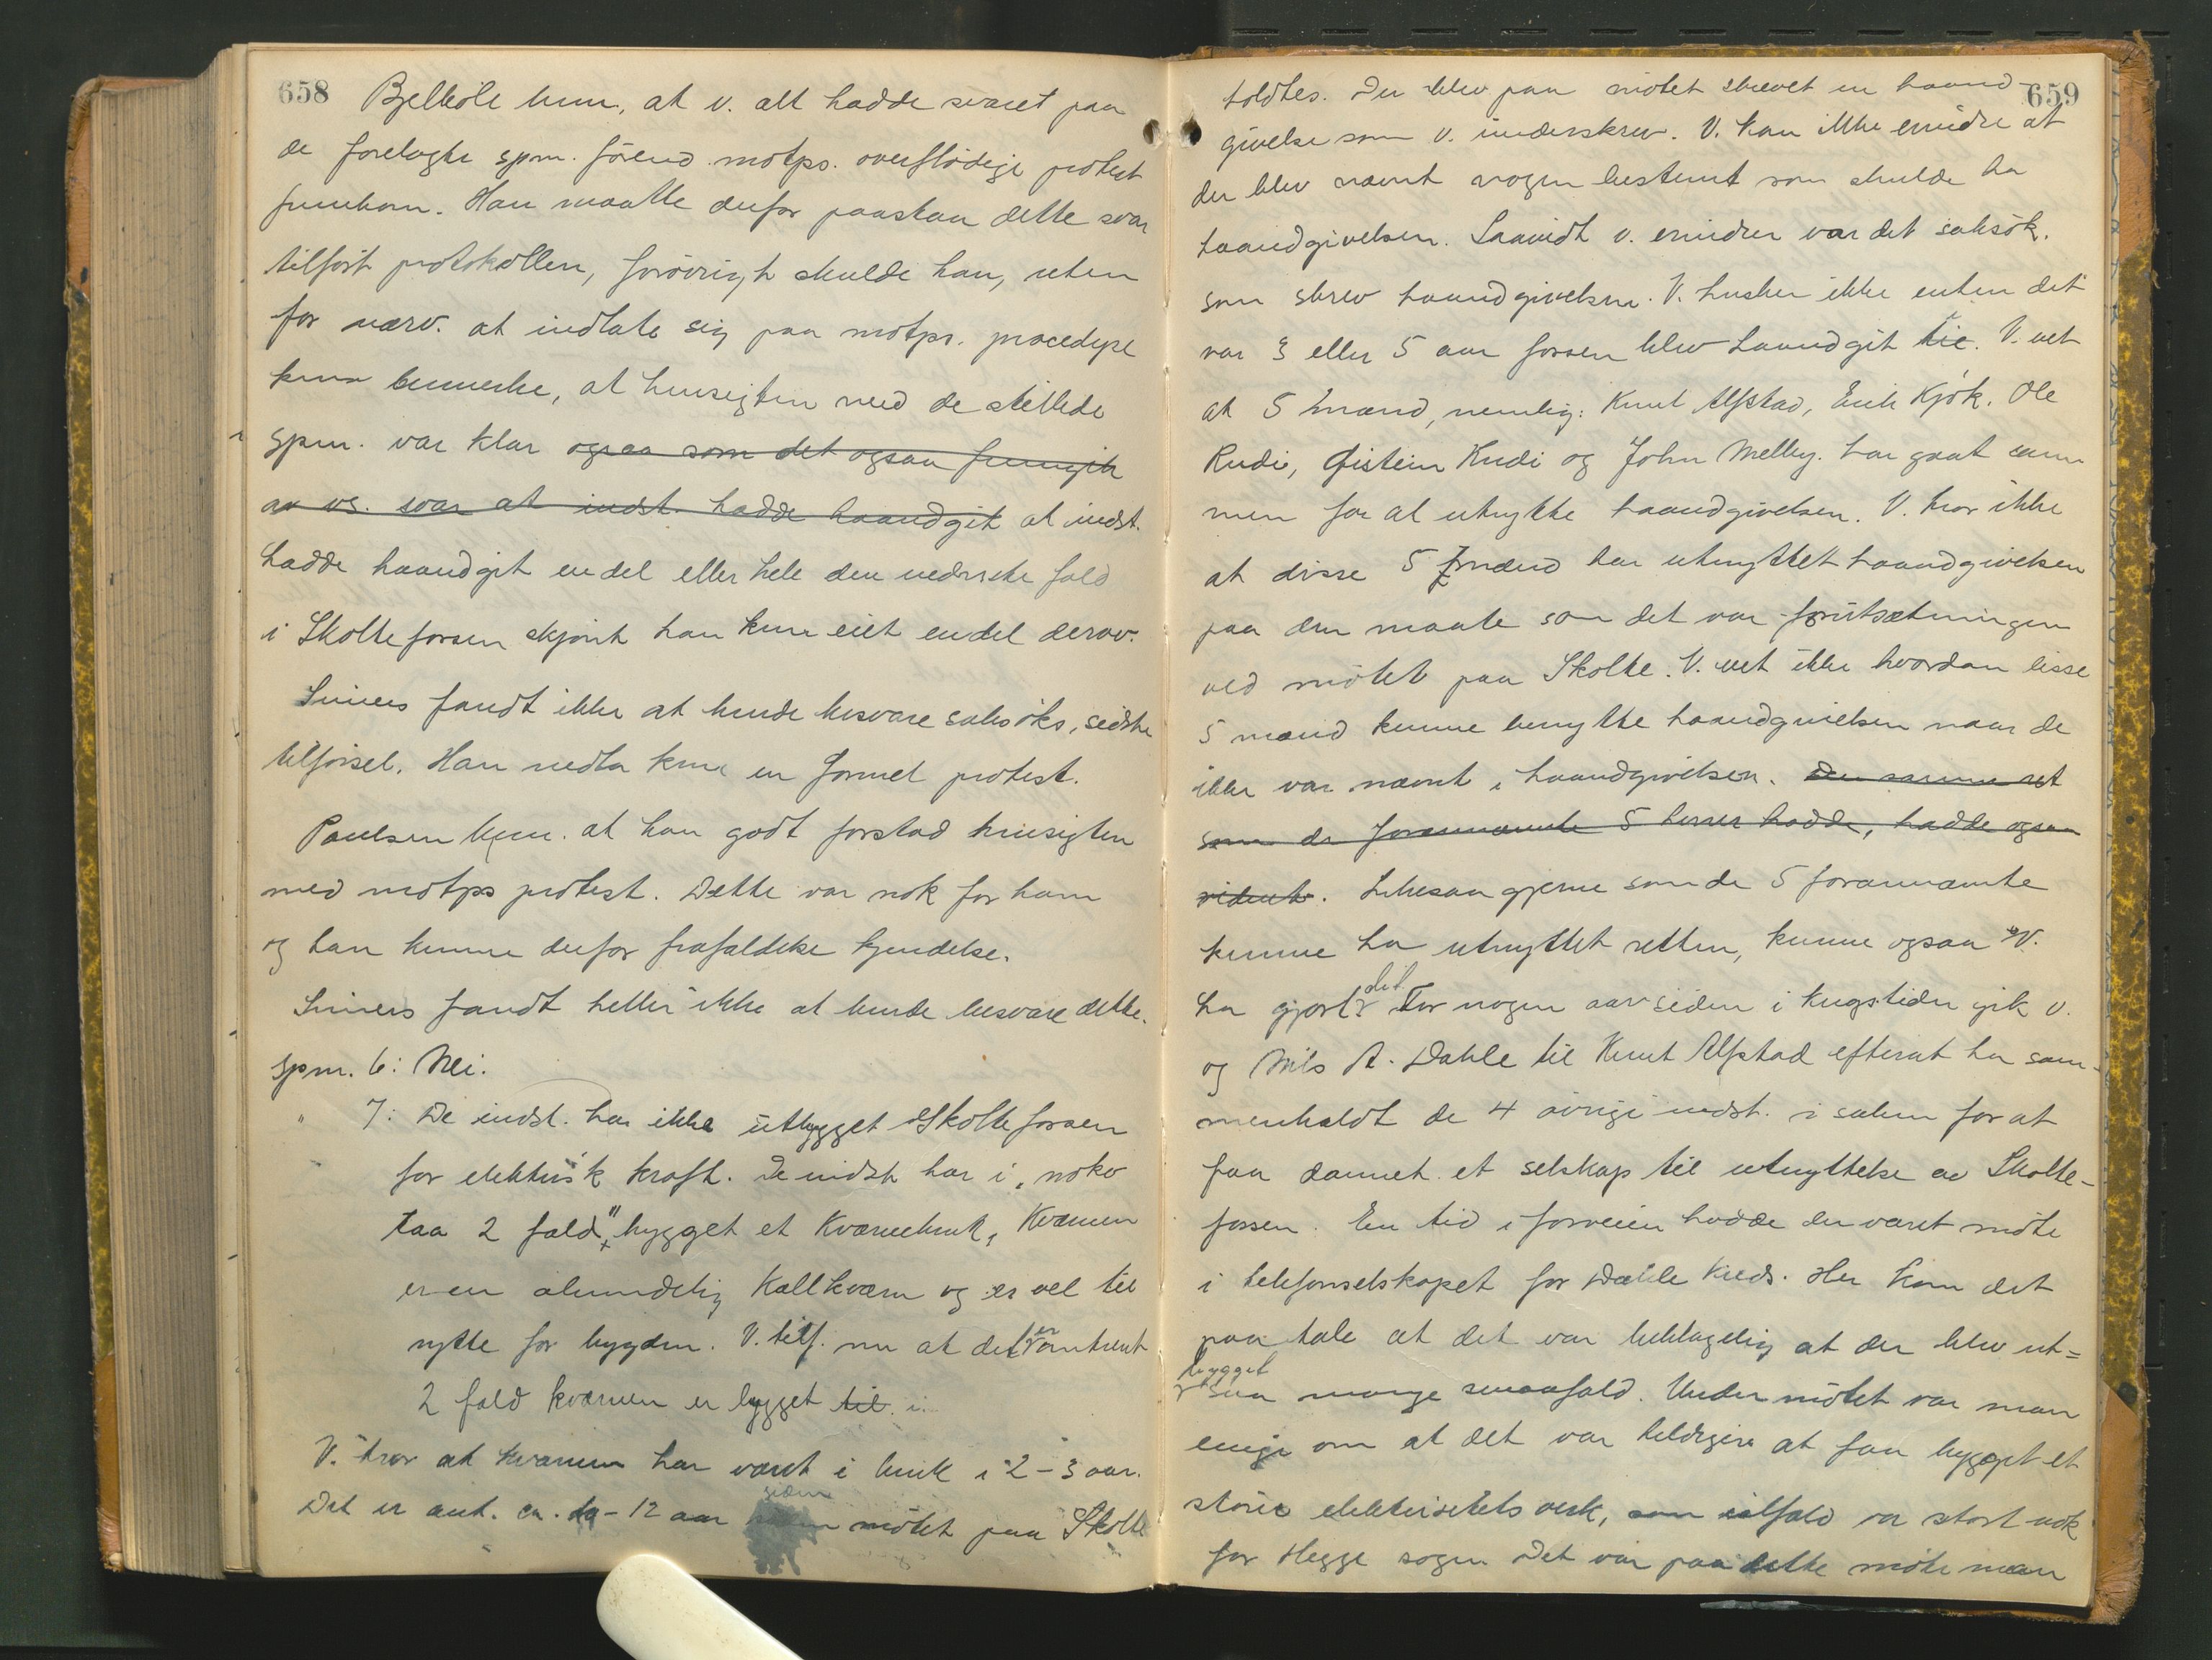 658
Bjelköle bem., at v. alt hadde svaret paa
de forelagte spm. förend motps. overflödige protest
fremkom. Han maatte derfor paastaa dette svar
tilfört protokollen, forövrigt skulde han, uten
for nærv. at indlate sig paa motps. procedyre
kun bemerke, at hensigten med de stillede
spm. var klar ogsaa som det ogsaa fremgik
av vs. svar at indst. hadde haandgit at indst.
hadde haandgit en del eller hele den nederste fald
i Skoltefossen skjönt han kun eiet en del derav.
Sivers fandt ikke at burde besvare saksöks. sidste
tilförsel. Han nedla kun en formel protest.
Paulsen bem. at han godt forstod hensigten
med motps protest. Dette var nok for ham
og han kunne derfor frafaldeke kjendelse.
Sivers fandt heller ikke at burde besvare dette.
Spm. 6: Nei.
" 7: De indst. har ikke utbygget Skoltefossen
for elektrisk kraft. De indst har i "noko
taa 2 fald" bygget et Kværnebruk, Kværnen
er en almindelig Kallkværn og er vel til
nytte for bygden. V. tilf. nu at det er omtrent
2 fald kværnen er bygget til i.
V. tror at kværnen har været i bruk i 2-3 aar.
Det er ant. ca. 10-12 aar siden mötet paa Skolte
659
holdtes. Der blev paa mötet skrevet en haand-
givelse som v. underskrev. V. kan ikke erindre at
der blev nævnt nogen bestemt som skulde ha
haandgivelsen. Saavidt v. erindrer var det saksök.
som skrev haandgivelsen. V. husker ikke enten det
var 3 eller 5 aar fossen blev haandgit til. V. vet
at 5 mænd, nemlig: Knut Alfstad, Erik Kjök. Ole
Rudi, Øistein Rudi og John Melby. har gaat sam
men for at utnytte haandgivelsen. V. tror ikke
at disse 5 mænd har utnyttet haandgivelsen
paa den maate som det var forutsætningen
ved mötet paa Skolte. V. vet ikke hvordan disse
5 mænd kunne benytte haandgivelsen naar de
ikke var nævnt i haandgivelsen. Den samme ret
som de forannævnte 5 herrer hadde, hadde ogsaa
vidnet. Likesaa gjerne som de 5 forannævnte
kunne ha utnyttet retten, kunne ogsaa V.
ha gjort det. For nogen aar siden i krigstiden gik v.
og Nils A. Dahle til Knut Alfstad efterat ha sam-
menkaldt de 4 övrige indst. i saken for at
faa dannet et selskap til utnyttelse av Skolte-
fossen. En tid i forveien hadde der været möte
i telefonselskapet for Dahle kreds. Her kom det
paa tale at det var beklagelig at der blev ut=
bygget saa mange smaafald. Under mötet var man
enige om at det var heldigere at faa bygget et
större elektrisitetsverk, som ialfald var stort nok
for Hegge sogn. Det var paa dette möte man